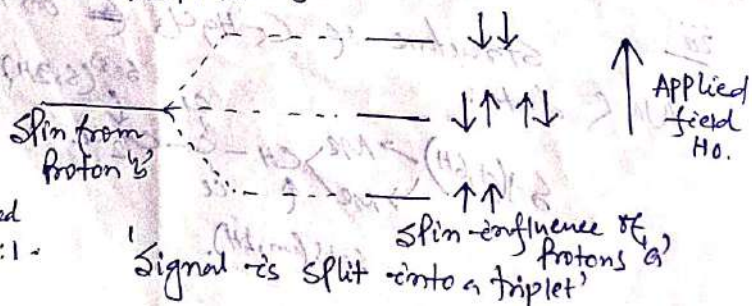 ↓↓
↓↑ ↑↓
Applied
field
H₀.
Spin from
Proton 'b'
↑↑
Spin-influence of
Protons 'a'
'Signal is split into a triplet'